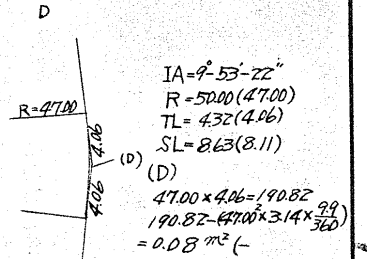 D
R=47.00
4.06
4.06
(D)
IA=9°-53'-22"
R=50.00(47.00)
TL=4.32(4.06)
SL=8.63(8.11)
(D)
47.00×4.06=190.82
190.82-(47.00²×3.14×9.9/360)
=0.08 m² (-